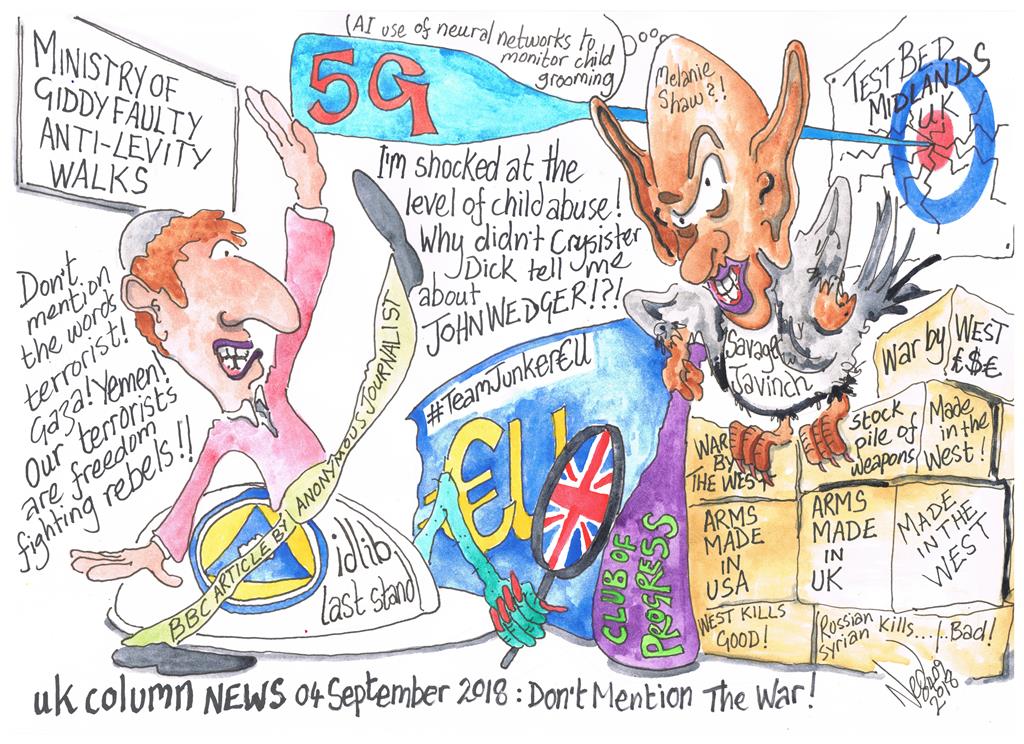 MINISTRY OF
GIDDY FAULTY
ANTI-LEVITY
WALKS
(AI use of neural networks to
monitor child
grooming
5G
Melanie
Shaw?!
TEST BED
MIDLANDS
UK
I'm shocked at the
level of child abuse!
Why didn't Crysister
Dick tell me
about
JOHN WEDGER!?!
Don't
mention
the words
terrorist!
Gaza! Yemen!
Our terrorists
are freedom
fighting rebels!!
BBC ARTICLE BY: ANONYMOUS JOURNALIST
idlib
last stand
#TeamJunker€U
€U
CLUB OF
PROGRESS
Savage
Javinch
War by
WEST
£$€
WAR
BY
THE WEST
STOCK
pile of
weapons
Made
in the
West!
ARMS
MADE
IN
USA
ARMS
MADE
IN
UK
MADE
IN THE
WEST
WEST KILLS
GOOD!
Russian
Syrian kills......Bad!
2018
uk column NEWS 04 September 2018 : Don't Mention The War!